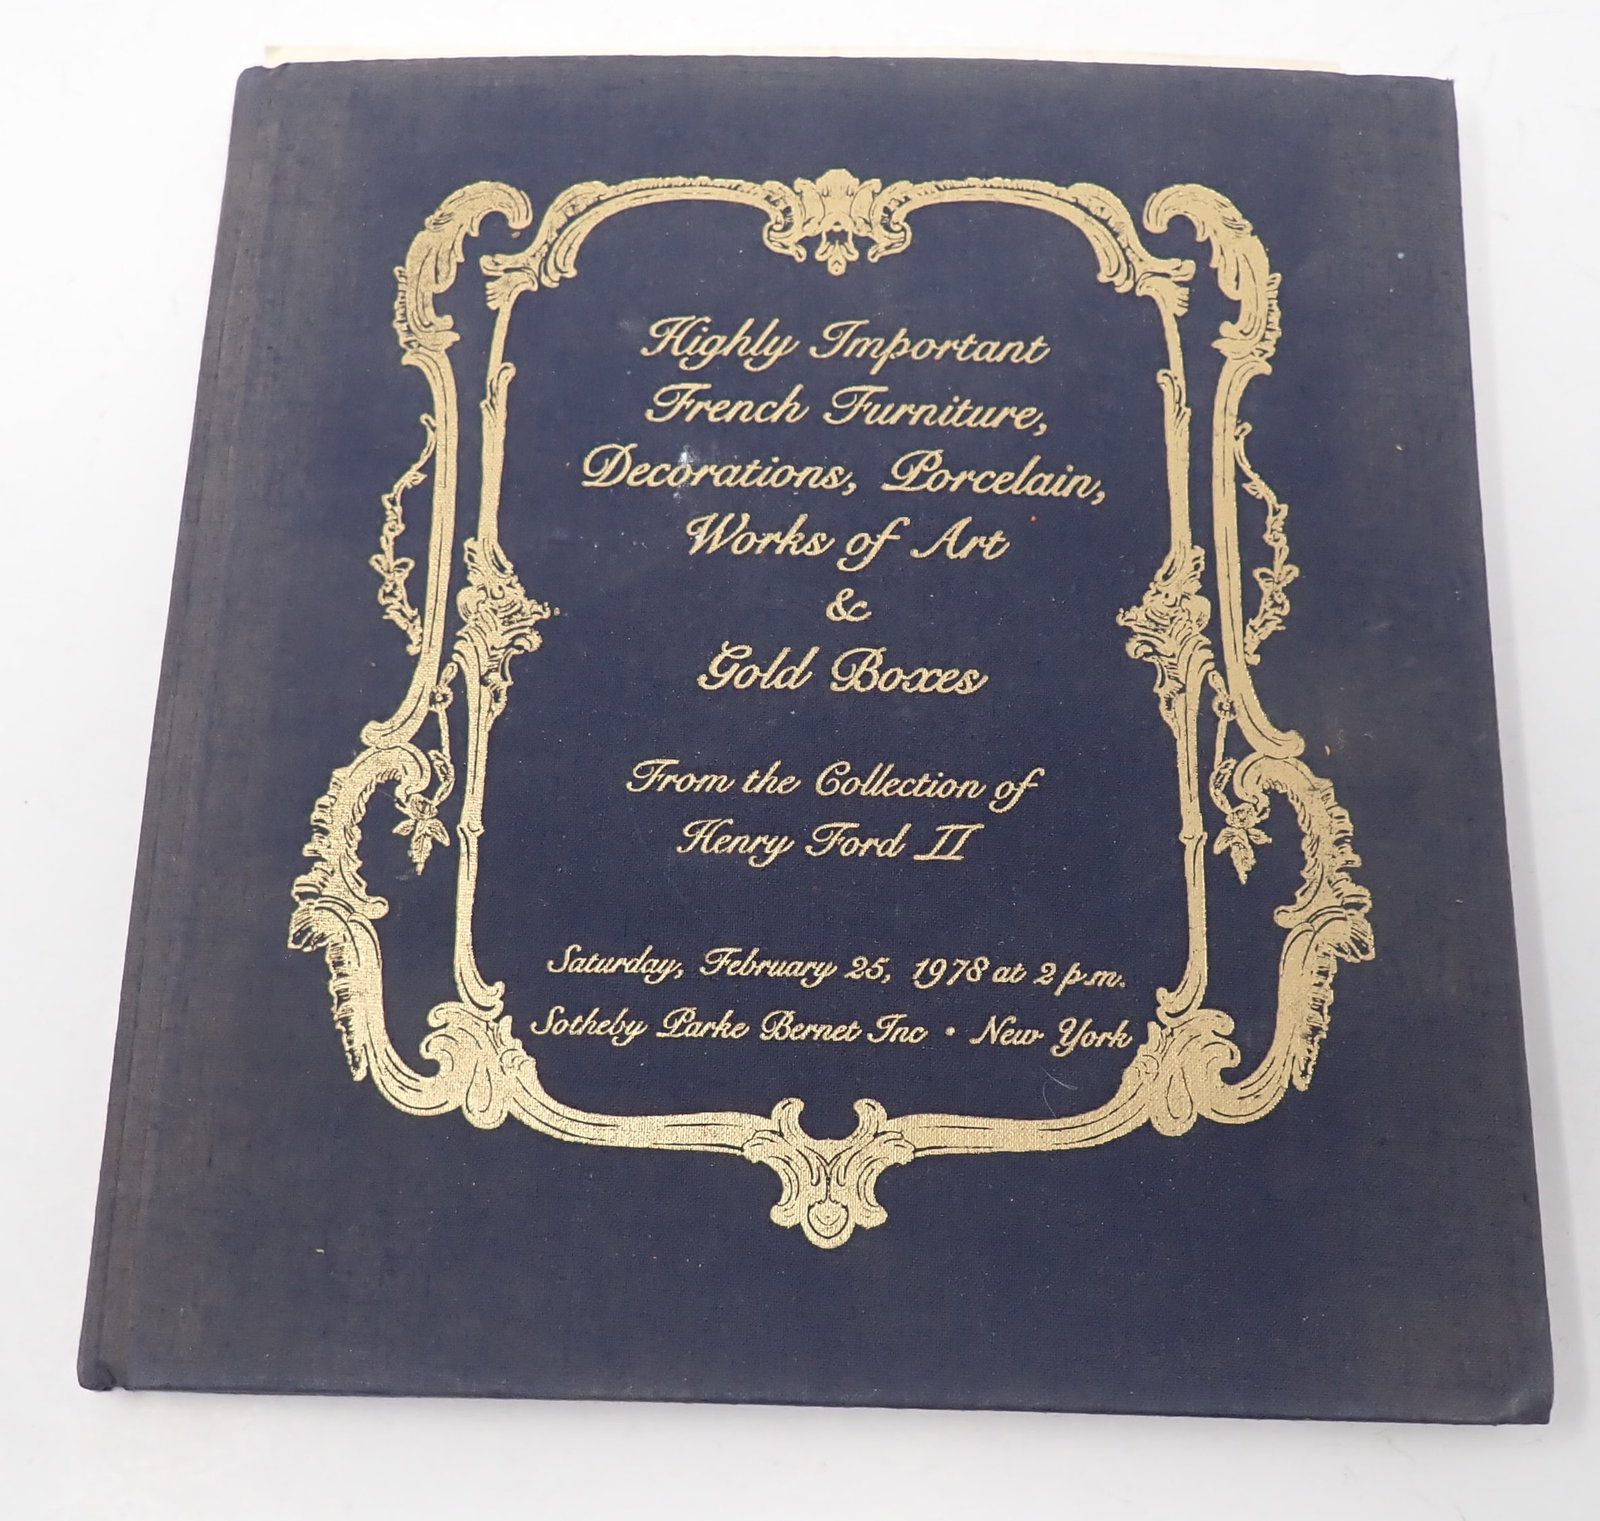 Highly Important
French Furniture,
Decorations, Porcelain,
Works of Art
&
Gold Boxes
From the Collection of
Henry Ford II
Saturday, February 25, 1978 at 2 p.m.
Sotheby Parke Bernet Inc • New York